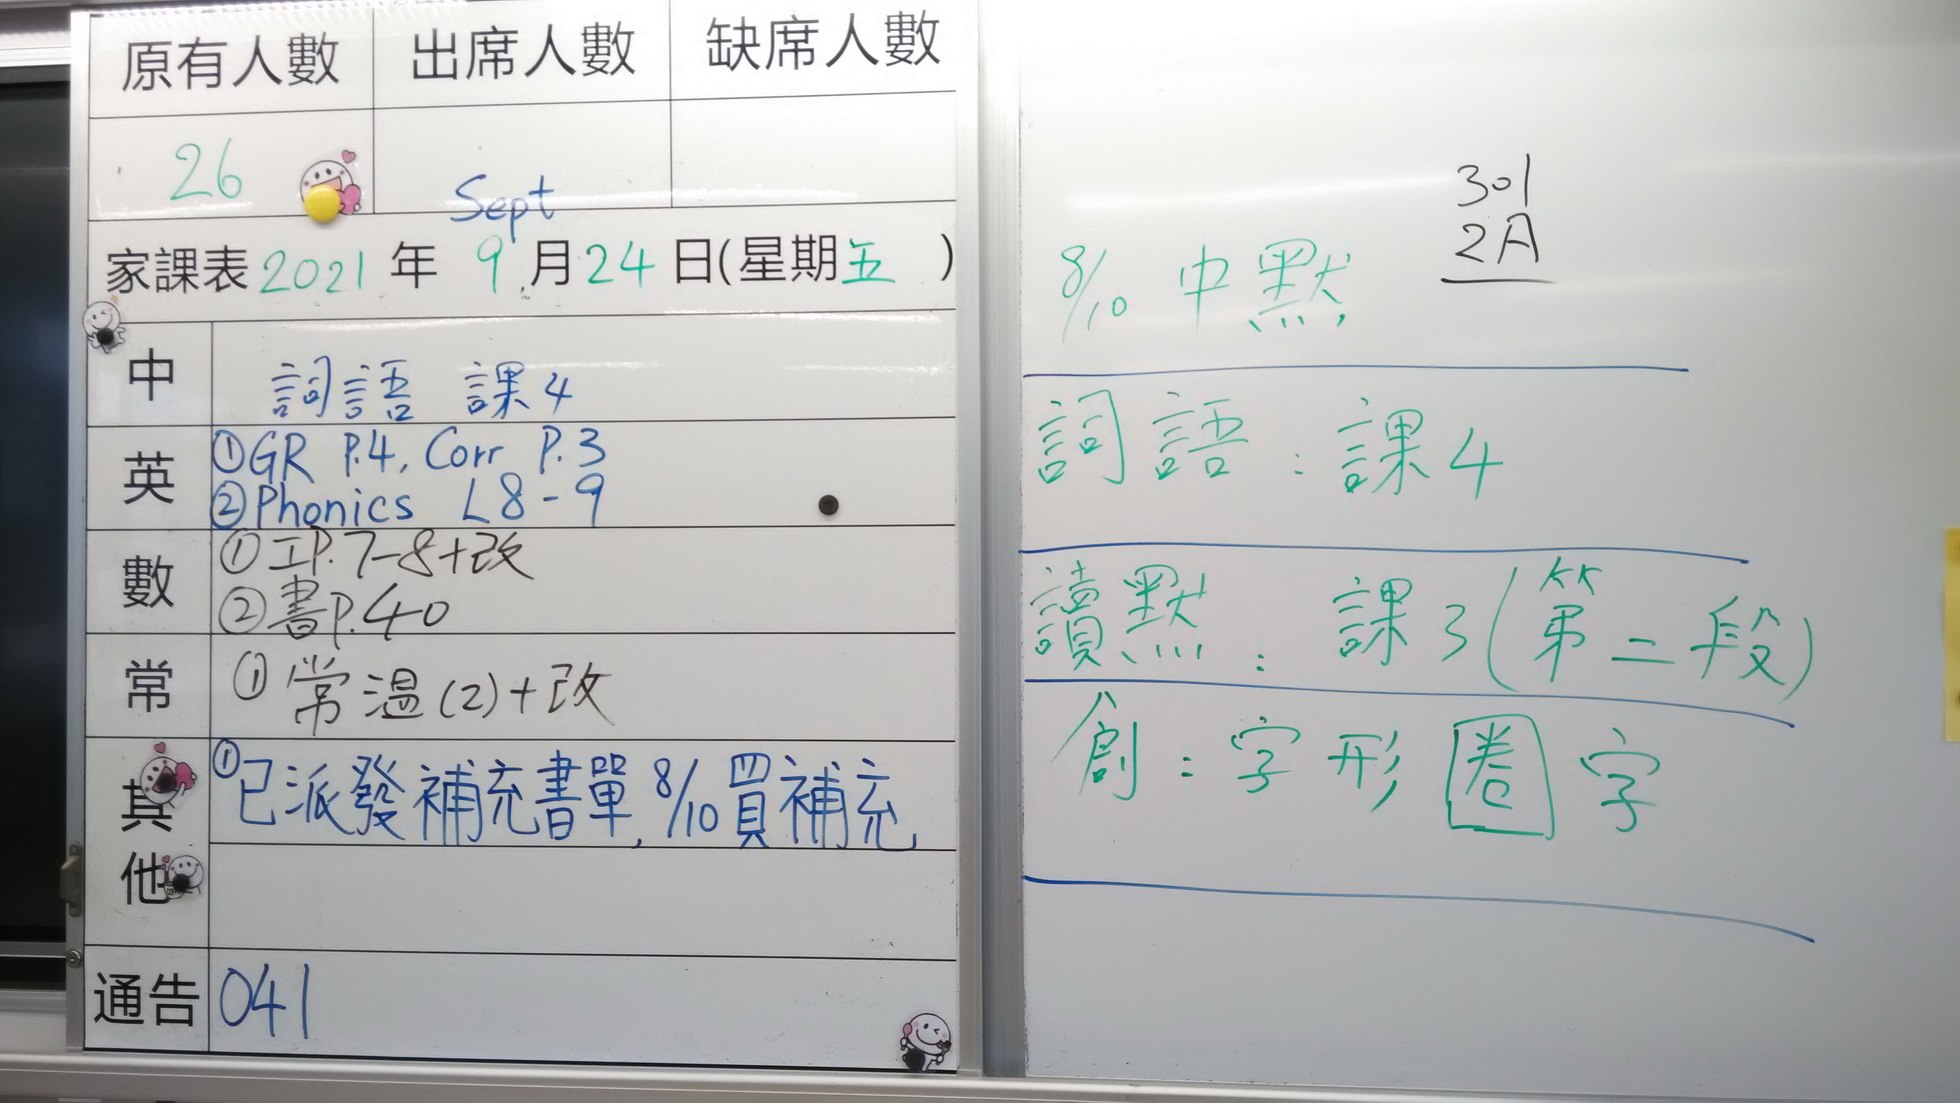 原有人數 出席人數 缺席人數
26
Sept
家課表 2021 年 9 月 24 日(星期五)
中 詞語 課4
英 ①GR P.4, Corr P.3
②Phonics L8-9
數 ①工P.7-8+改
②書P.40
常 ①常温(2)+改
其他 ①已派發補充書單, 8/10買補充
通告 041
301
2A
8/10 中默
詞語:課4
讀默:課3(第二段)
創:字形圈字